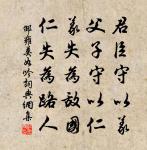 君臣守以義
父子守以仁
義失為敵國
仁失為路人
邵雍莫如吟詞典網集